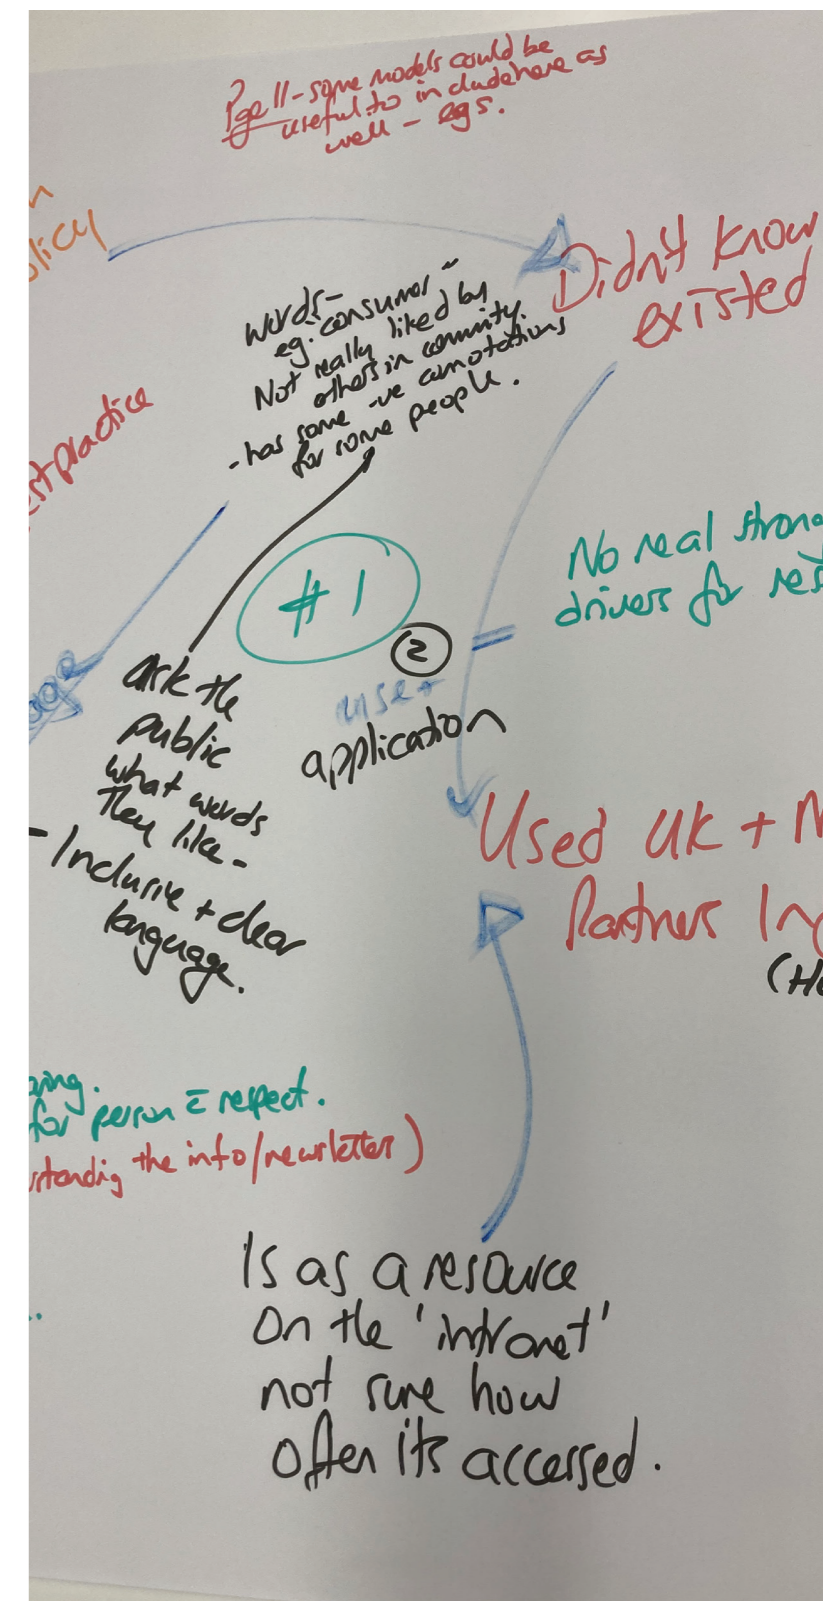 Page 11 - some models could be
useful to include here as
well - egs.
olicy
Didn't know
existed
words -
eg. "consumer"
Not really liked by
others in community.
- has some -ve connotations
for some people.
practice
#1
2
use +
application
No real strong
drivers for
ask the
public
what words
they like -
- Inclusive + clear
language.
Used UK +
Partners In
for person c̄ respect.
the info/newsletter)
Is as a resource
on the 'intranet'
not sure how
often its accessed.